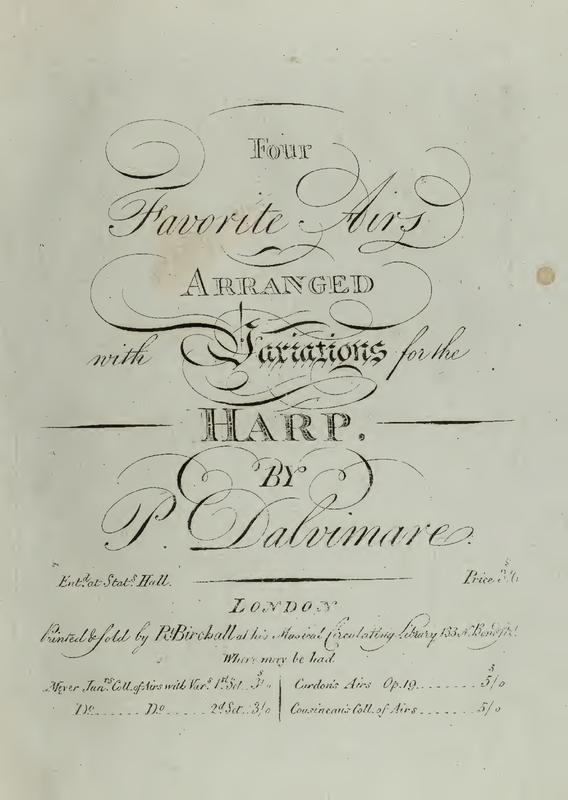 Four
Favorite Airs
ARRANGED
with Variations for the
HARP.
BY
P. Dalvimare.
Entd. at Stats. Hall. Price 3/6
LONDON
Printed & Sold by Rt. Birchall at his Musical Circulating Library 133 N. Bond Strt.
Where may be had
Meyer Junrs. Coll. of Airs with Vars. 1st. Set .. 3/0
Do ...... Do ...... 2d. Set .. 3/0
Cardon's Airs Op. 19 ........ s 5/0
Cousineau's Coll. of Airs ...... 5/0